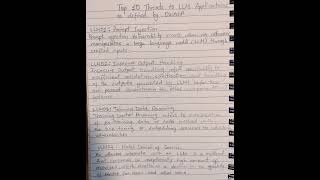 Top 10 Threats to LLM Applications
as defined by OWASP
LLM01: Prompt Injection
Prompt injection Vulnerability occurs when an attacker
manipulates a large language model (LLM) through
crafted inputs.
LLM02: Insecure Output Handling
Insecure Output Handling refers specifically to
insufficient validation, sanitization and handling
of the outputs generated by
passed downstream to other components
LLM03: Training Data Poisoning
Training Data Poisoning refers to manipulation
of pre-training data or data involved within
the fine-tuning or embedding processes to introduce
vulnerabilities
LLM04: Model Denial of Service
An attacker interacts with an LLM in a method
that consumes an exceptionally high amount of
resources, which results in a decline in the quality
of service for them and other users